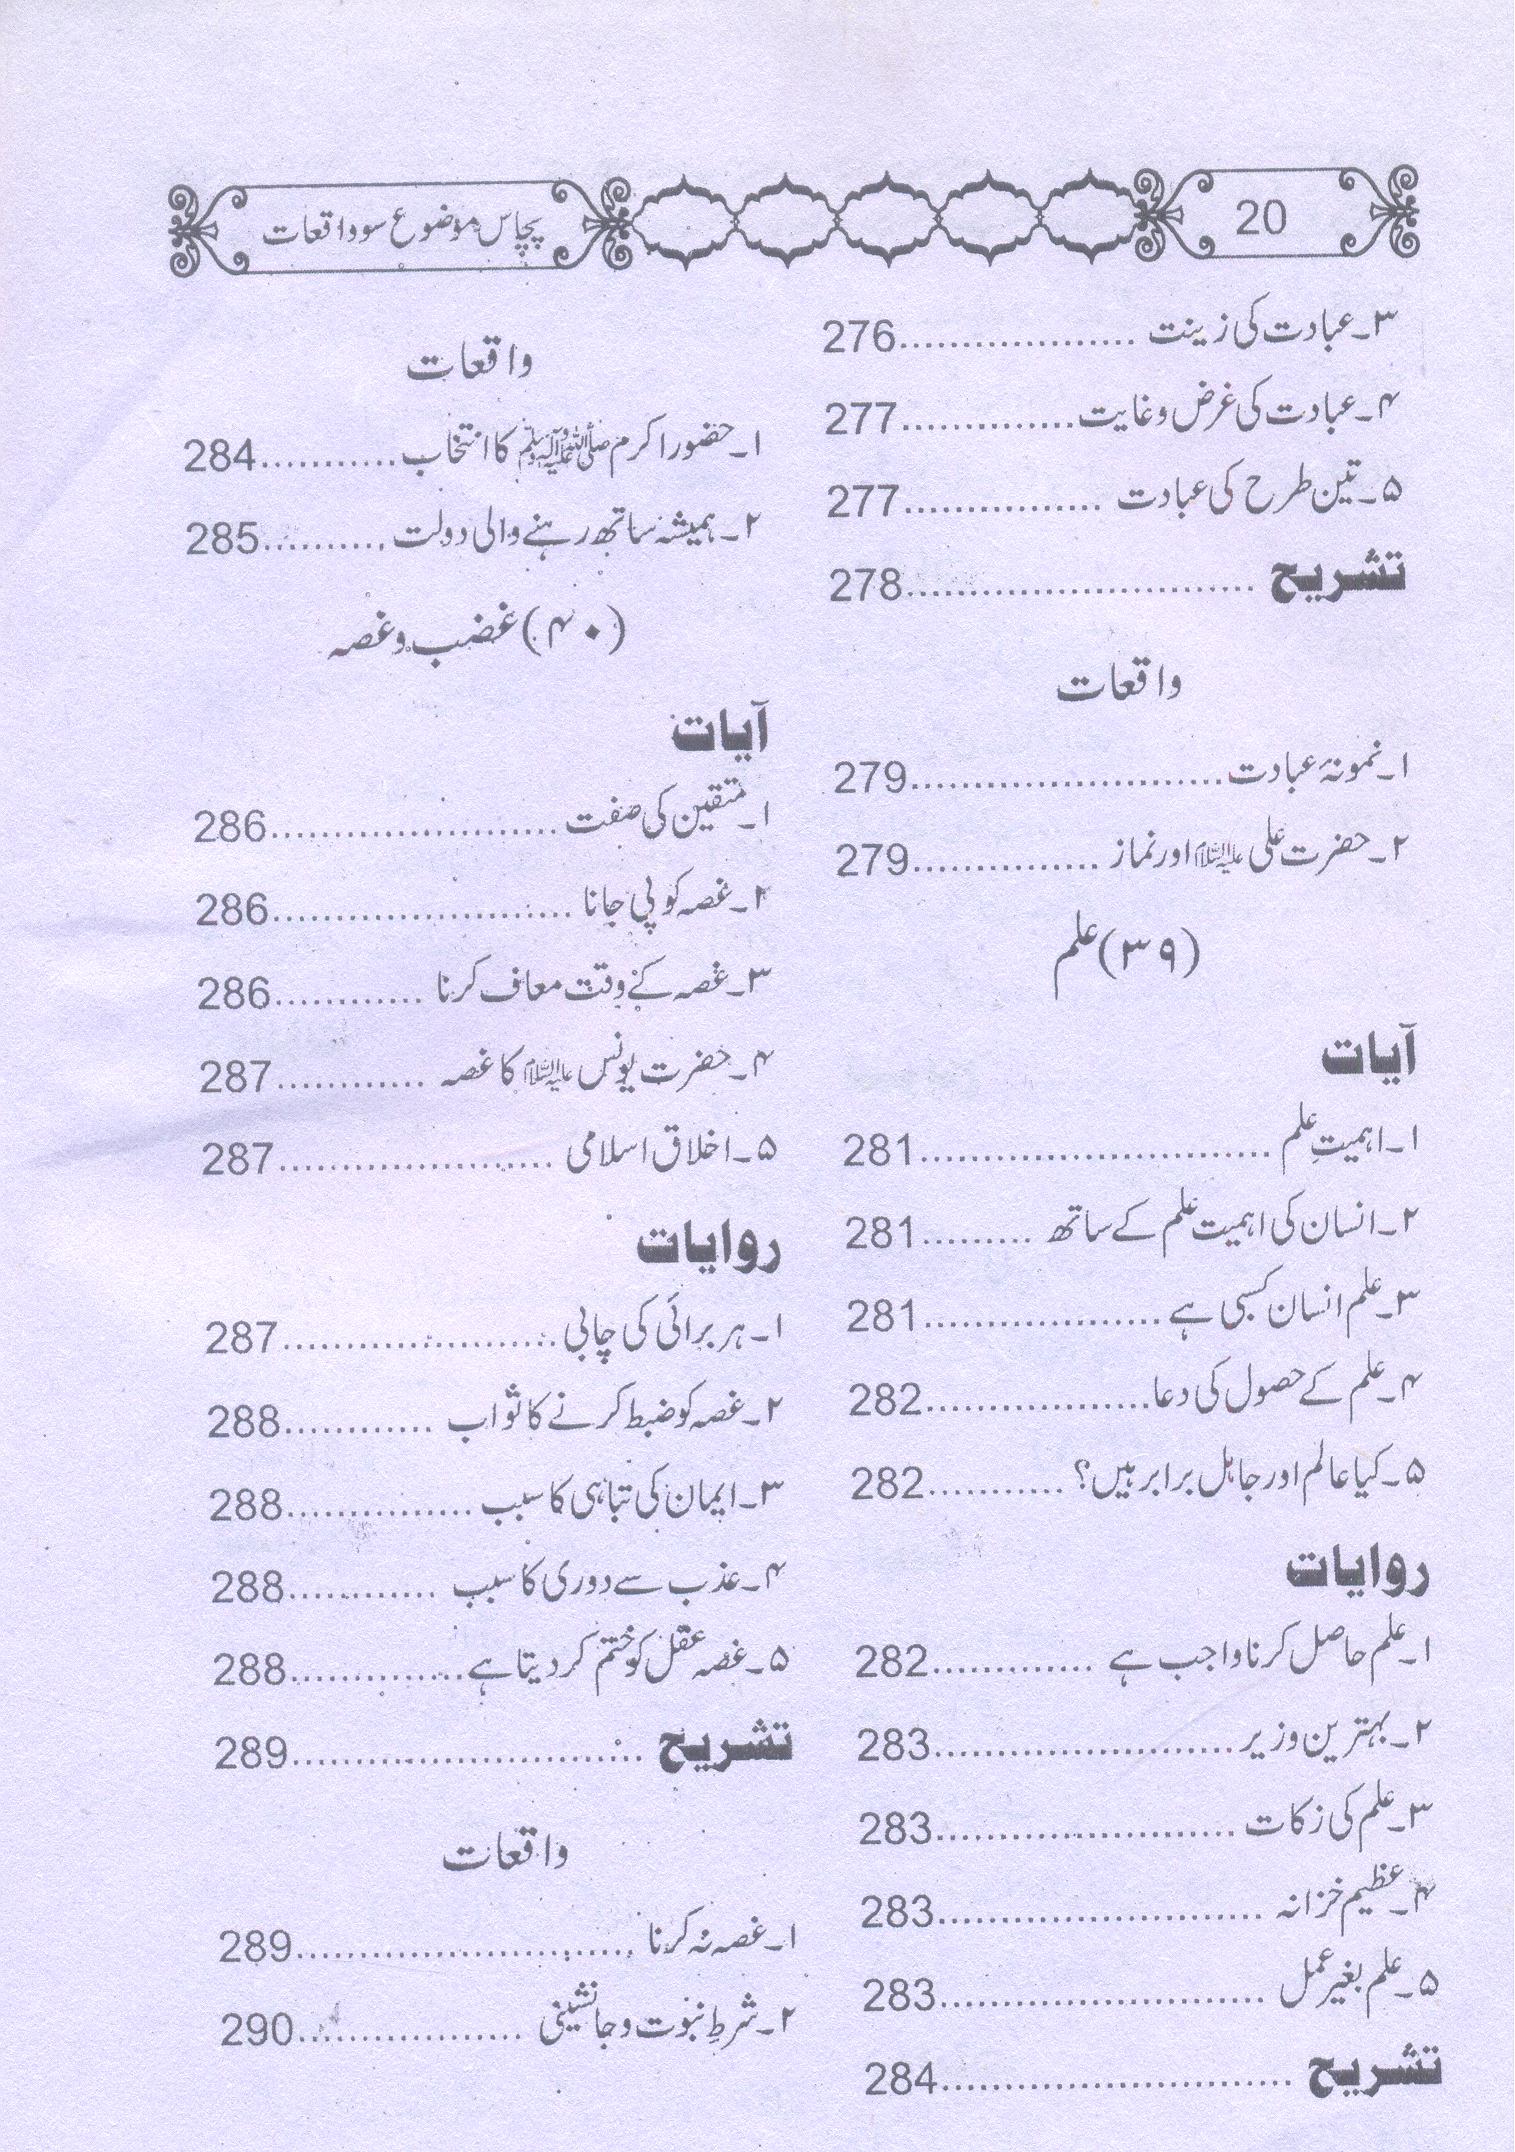 20
پچاس موضوع سو واقعات
۳۔عبادت کی زینت ................... 276
۴۔عبادت کی غرض و غایت.............. 277
۵۔تین طرح کی عبادت ................ 277
تشریح ............................ 278
واقعات
۱۔نمونۂ عبادت......................... 279
۲۔حضرت علی علیہ السلام اور نماز ............... 279
(۳۹) علم
آیات
۱۔اہمیتِ علم ............................ 281
۲۔انسان کی اہمیت علم کے ساتھ ......... 281
۳۔علم انسان کسبی ہے ................... 281
۴۔علم کے حصول کی دعا.................. 282
۵۔کیا عالم اور جاہل برابر ہیں؟ ........... 282
روایات
۱۔علم حاصل کرنا واجب ہے ............. 282
۲۔بہترین وزیر ........................ 283
۳۔علم کی زکات ........................ 283
۴۔عظیم خزانہ .......................... 283
۵۔علم بغیر عمل .......................... 283
تشریح ............................ 284
واقعات
۱۔حضور اکرم صلی اللہ علیہ وآلہ وسلم کا انتخاب........... 284
۲۔ہمیشہ ساتھ رہنے والی دولت .......... 285
(۴۰) غضب و غصہ
آیات
۱۔متقین کی صفت ....................... 286
۲۔غصہ کو پی جانا ........................ 286
۳۔غصہ کے وقت معاف کرنا ............ 286
۴۔حضرت یونس علیہ السلام کا غصہ ............ 287
۵۔اخلاق اسلامی ...................... 287
روایات
۱۔ہر برائی کی چابی ...................... 287
۲۔غصہ کو ضبط کرنے کا ثواب ............ 288
۳۔ایمان کی تباہی کا سبب ............... 288
۴۔عذب سے دوری کا سبب ............ 288
۵۔غصہ عقل کو ختم کر دیتا ہے.............. 288
تشریح ............................ 289
واقعات
۱۔غصہ نہ کرنا ........................... 289
۲۔شرطِ نبوت و جانشینی .................. 290